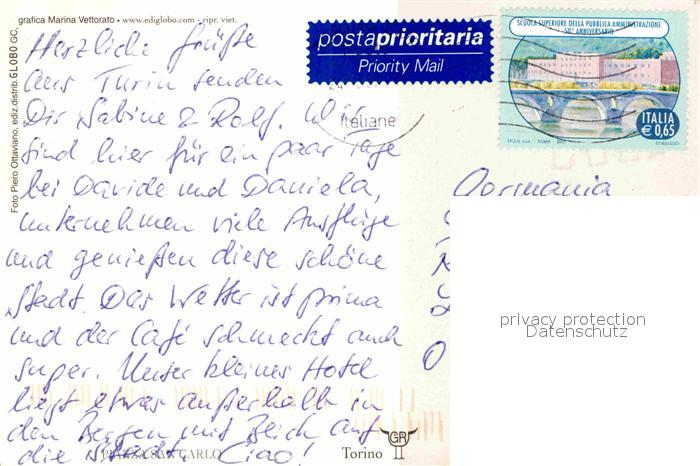 grafica Marina Vettorato • www.ediglobo.com - ripr. viet.
Foto Piero Ottaviano, ediz.distrib. GLOBO GC,
Herzliche Grüße
aus Turin senden
Dir Sabine & Rolf. Wir
sind hier für ein paar Tage
bei Davide und Daniela,
unternehmen viele Ausflüge
und genießen diese schöne
Stadt. Das Wetter ist prima
und der Café schmeckt auch
super. Unser kleines Hotel
liegt etwas außerhalb in
den Bergen mit Blick auf
die Stadt. Ciao!
PIAZZA SAN CARLO
Torino
GR
postaprioritaria
Priority Mail
italiane
SCUOLA SUPERIORE DELLA PUBBLICA AMMINISTRAZIONE
50° ANNIVERSARIO
ITALIA
€ 0,65
Germania
privacy protection
Datenschutz